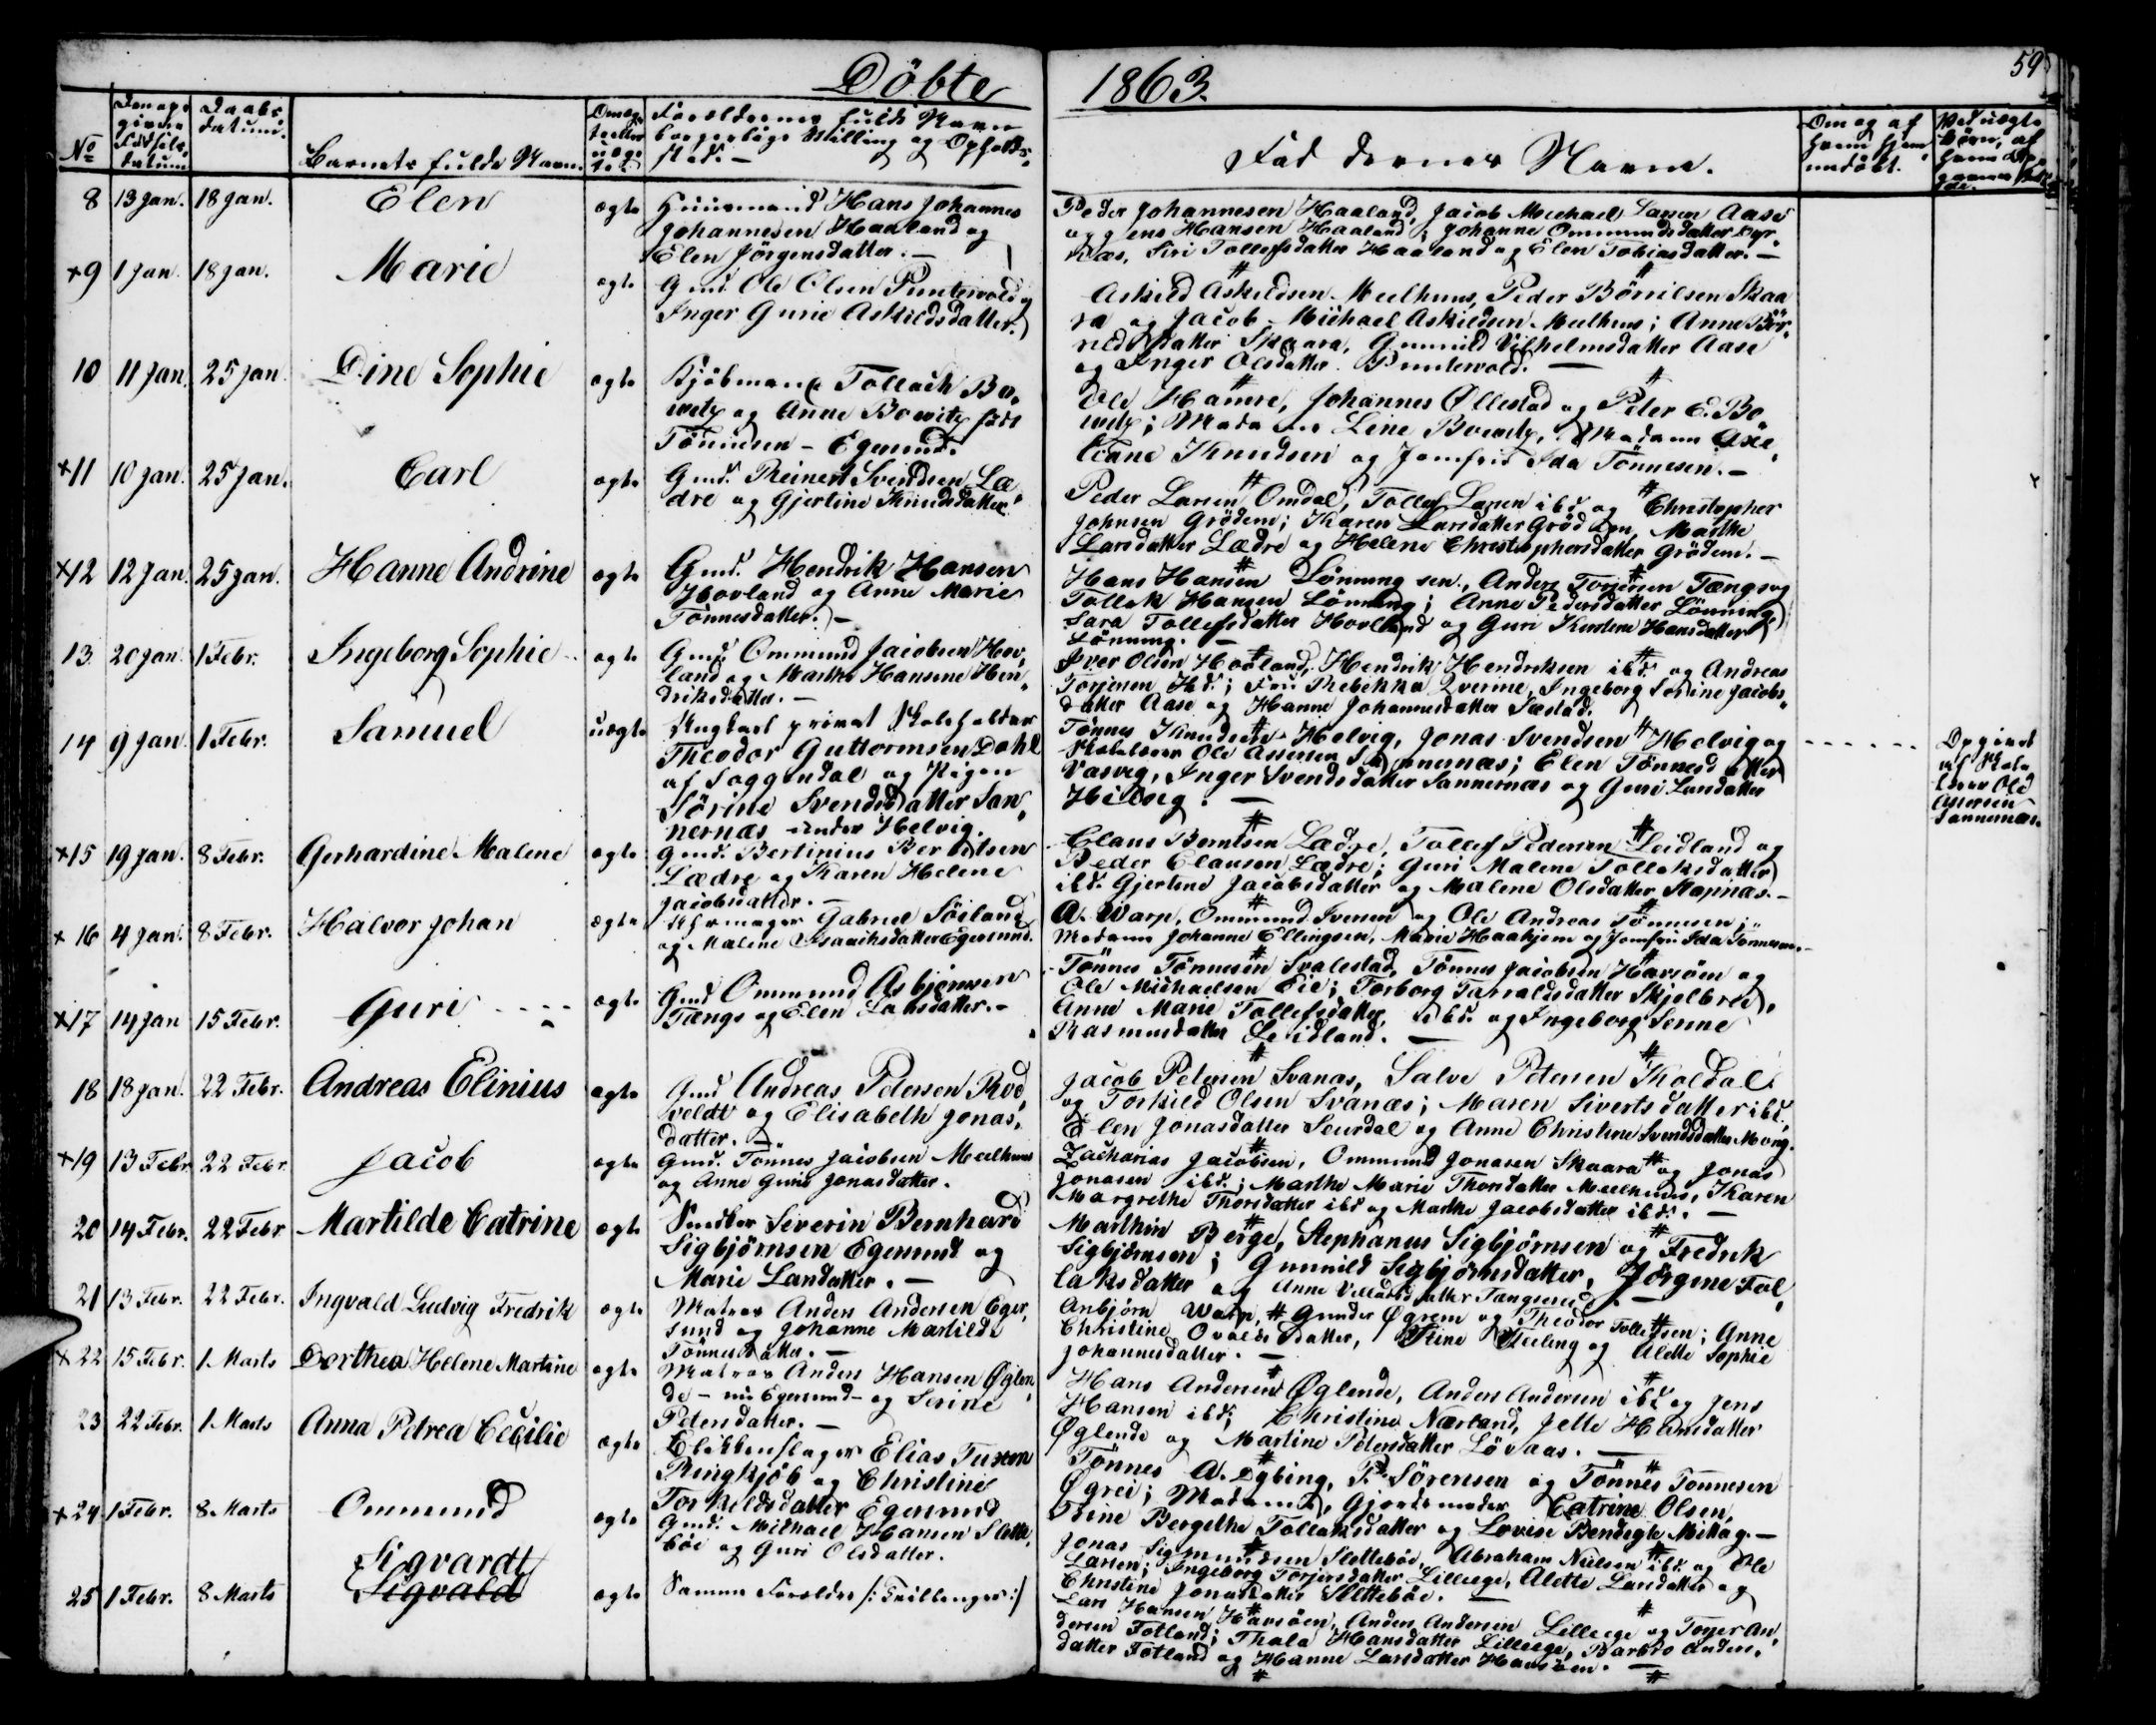 Döbte 1863. 59
No
Den opgivne Födsels datum
Daabs datum.
Barnets fulde Navn.
Om ægte eller uægte
Forældrenes fulde Navn borgerlige Stilling og Opholdssted. —
Faddernes Navne.
Om og af hvem hjemmedöbt.
Ved uægte Börn, af hvem
8 13 Jan. 18 Jan. Elen ægte Huusmand Hans Johannes
Johannesen Haaland og
Elen Jörgensdatter. —
Peder Johannesen Haaland, Jacob Michael Larsen Aase
og Jens Hansen Haaland; Johanne Ommundsdatter Byr-
næs, Siri Tollefsdatter Haaland og Elen Tobiasdatter. —
+9 1 Jan. 18 Jan. Marie ægte Gmd. Ole Olsen Puntervold og
Inger Gurie Askildsdatter.
Askild Askildsen Meelhuus, Peder Börrilsen Skaa
ra og Jacob Michael Askildsen Meelhuus; Anne Bör-
rildsdatter Skaara, Gunnild Vilhelmsdatter Aase
og Inger Olsdatter Puntervold. —
10 11 Jan. 25 Jan. Dine Sophie ægte Kjöbmand Tollach Bo-
witz og Anne Bowitz föde
Tönnesen - Egersund.
Ole Hamre, Johannes Øllestad og Peter C. Bo
witz; Madame Lene Bowitz, Madame Axe-
liane Knudsen og Jomfru Ida Tönnesen. —
+11 10 Jan. 25 Jan. Carl ægte Gmd. Reinert Svendsen Læ-
dre og Gjertine Knudsdatter.
Peder Larsen Omdal, Tollef Larsen ibd. og Christopher
Johnsen Grödem; Karen Larsdatter Grödem, Marthe
Larsdatter Lædre og Helene Christophersdatter Grödem. —
+12 12 Jan. 25 Jan. Hanne Andrine ægte Gmd. Hendrik Hansen
Hovland og Anne Marie
Tönnesdatter. —
Hans Hansen Lönning sen., Anders Torjersen Tængs og
Tollak Hansen Lönning; Anne Pedersdatter Lönning,
Sara Tollefsdatter Hovland og Guri Kirstine Hansdatter
Lönning. —
13. 20 Jan. 1 Febr. Ingeborg Sophie ægte Gmd. Ommund Jacobsen Hov-
land og Marthe Hansine Hen-
driksdatter. —
Iver Olsen Hovland, Hendrik Hendriksen ibd. og Andreas
Torjersen ibd.; Fru Rebekka Qverme, Ingeborg Sorine Jacobs-
datter Aase og Hanne Johannesdatter Sæstad.
14 9 Jan. 1 Febr. Samuel uægte Ungkarl privat Skoleholder
Theodor Guttormsen Dahl
af Soggendal og Pigen
Sörine Svendsdatter San-
nernæs under Helvig.
Tönnes Knudsen Helvig, Jonas Svendsen Helvig og
Skolelærer Ole Assersen Sannernæs; Elen Tönnesdatter
Vasvig, Inger Svendsdatter Sannernæs og Guri Larsdatter
Helvig. —
Opgivet
af Skole
lærer Ole
Assersen
Sannernæs.
+15 19 Jan. 8 Febr. Gerhardine Malene ægte Gmd. Bertinius Berntsen
Lædre og Karen Helene
Jacobsdatter. —
Claus Berntsen Lædre, Tollef Pedersen Leidland og
Peder Clausen Lædre; Guri Malene Tollaksdatter
ibd. Gjertine Jacobsdatter og Malene Olsdatter Stapnæs. —
+16 4 Jan. 8 Febr. Halvor Johan ægte Uhrmager Gabriel Söiland
og Malene Isaachsdatter Egersund.
A. Warp, Ommund Iversen og Ole Andreas Tönnesen;
Madame Johanne Ellingsen, Marie Haakjem og Jomfru Ida Tönnesen. —
+17 14 Jan 15 Febr. Guri ægte Gmd Ommund Asbjörnsen
Tængs og Elen Larsdatter. —
Tönnes Tönnesen Svalestad, Tönnes Jacobsen Havsöen og
Ole Michaelsen Eie; Torborg Tarraldsdatter Skjelbred,
Anne Marie Tollefsdatter ibd. og Ingeborg Serine
Rasmusdatter Leidland. —
18 18 Jan. 22 Febr. Andreas Elinius ægte Gmd Andreas Petersen Rod-
veldt og Elisabeth Jonas-
datter. —
Jacob Petersen Svanæs, Salve Petersen Koldal
og Torkild Olsen Svanæs; Maren Sivertsdatter ibd.,
Elen Jonasdatter Seurdal og Anne Christine Svendsdatter Mong.
+19 13 Febr. 22 Febr. Jacob ægte Gmd. Tönnes Jacobsen Meelhuus
og Anne Gurie Jonasdatter.
Zacharias Jacobsen, Ommund Jonasen Skaara og Jonas
Jonasen ibd.; Marthe Marie Thorsdatter Meelhuus, Karen
Margrethe Thorsdatter ibd og Marthe Jacobsdatter ibd. —
20 14 Febr. 22 Febr Martilde Catrine ægte Snedker Severin Bernhard
Sigbjörnsen Egersund og
Marie Larsdatter. —
Marthin Berge, Stephanus Sigbjörnsen og Fredrik
Sigbjörnsen; Gunnild Sigbjörnsdatter, Jörgine Tol-
laksdatter og Anne Villadsdatter Tængsereid. —
21 13 Febr. 22 Febr. Ingvald Ludvig Fredrik ægte Matros Anders Andersen Eger-
sund og Johanne Martilde
Tönnesdatter. —
Anbjörn Warp, Gunder Øgreen og Theodor Tollefsen; Anne
Christine Ovaldsdatter, Stine Feeling og Alette Sophie
Johannesdatter. —
+22 15 Febr. 1 Marts Dorthea Helene Martine ægte Matros Anders Hansen Øglen-
de - nu Egersund - og Serine
Petersdatter. —
Hans Andersen Øglende, Anders Andersen ibd og Jens
Hansen ibd; Christine Nærland, Jette Hansdatter
Øglende og Martine Petersdatter Lövaas. —
23 22 Febr. 1 Marts Anna Petrea Cecilie ægte Blikkenslager Elias Tuxen
Ringkjöb og Christine
Torkildsdatter Egersund
Tönnes A. Dybing, P. Sörensen og Tönnes Tönnesen
Øgrei; Madame, Gjordemoder Catrine Olsen,
Trine Bergethe Tollaksdatter og Lovise Bendegte Mitlag. —
+24 1 Febr. 8 Marts Ommund ægte Gmd. Michael Hansen Slette-
böe og Guri Olsdatter.
Jonas Sigmundsen Sletteböe, Abraham Nielsen ibd. og Ole
Larsen; Ingeborg Torjersdatter Lilleege, Alette Larsdatter og
Christine Jonasdatter Sletteböe. —
25 1 Febr. 8 Marts Sigvardt
Sigvald
ægte Samme Forældre /: Tvillinger :/
Lars Hansen Havsöen, Anders Andersen Lilleege og Torjer An-
dersen Fotland; Thala Hansdatter Lilleege, Barbro Anders-
datter Fotland og Hanne Larsdatter Havsöen. —